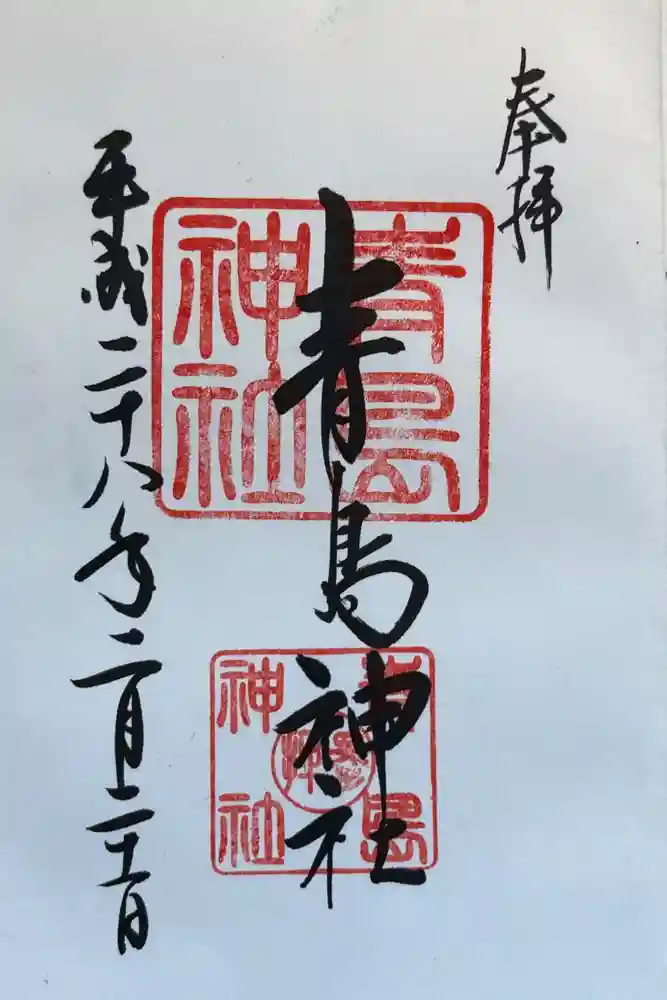 奉拝
青島神社
青島神社
青島神社
平成二十八年二月二十一日